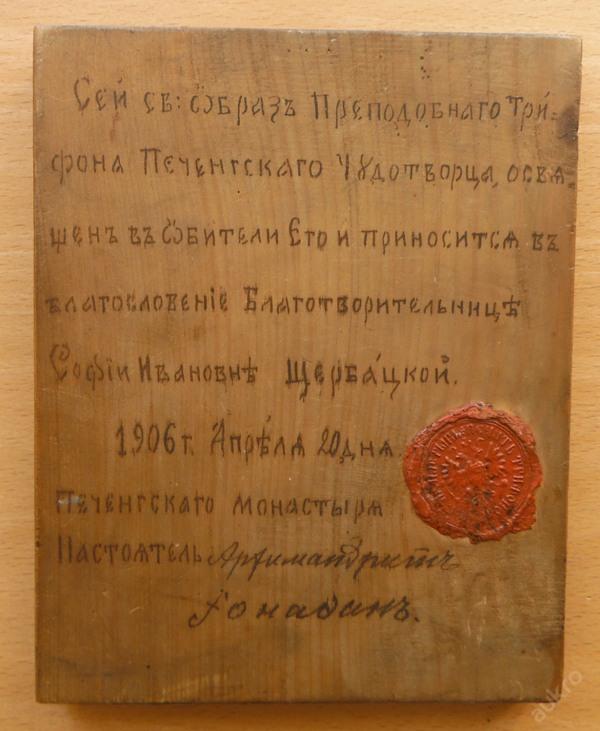 Сей св: ѡбразъ Преподобнаго Три-
фона Печенгскаго Чудотворца, освѧ-
щенъ въ ѡбители Его и приносится въ
благословеніе Благотворительницѣ
Софіи Ивановнѣ Щербацкой.
1906 г. Апрѣля 20 дня.
Печенгскаго монастыря
Настоятель Архимандритъ
Іонаѳанъ.
aukro